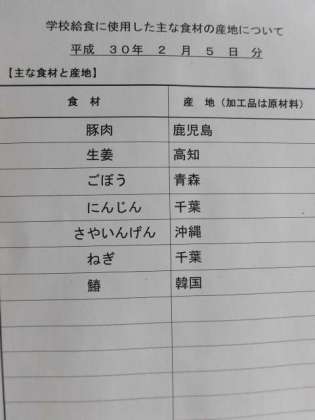 学校給食に使用した主な食材の産地について
平成 30年 2 月 5 日 分
【主な食材と産地】
食 材 産 地（加工品は原材料）
豚肉 鹿児島
生姜 高知
ごぼう 青森
にんじん 千葉
さやいんげん 沖縄
ねぎ 千葉
鰆 韓国